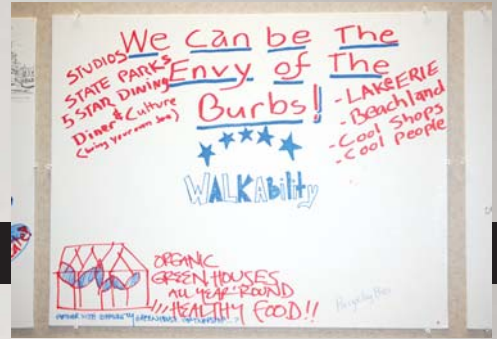 We can be The
Envy of The
Burbs!
STUDIOS
STATE PARKS
5 STAR DINING
Diner & Culture
(bring your own
- LAKE ERIE
- Beachland
- Cool Shops
- Cool People
WALKAbility
ORGANIC
GREENHOUSES
ALL YEAR 'ROUND
HEALTHY FOOD!!